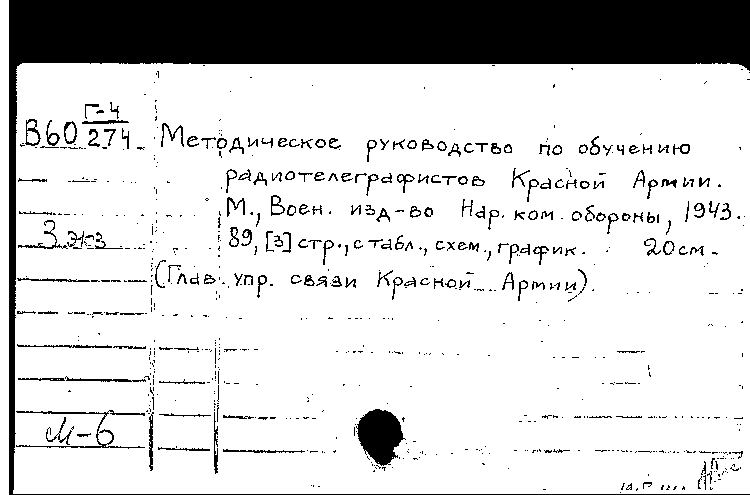 В60 Г-4/274 Методическое руководство по обучению
радиотелеграфистов Красной Армии.
М., Воен. изд-во Нар. ком. обороны, 1943.
3 экз 89, [3] стр., с табл., схем., график. 20 см.
(Глав. упр. связи Красной Армии).
М-6